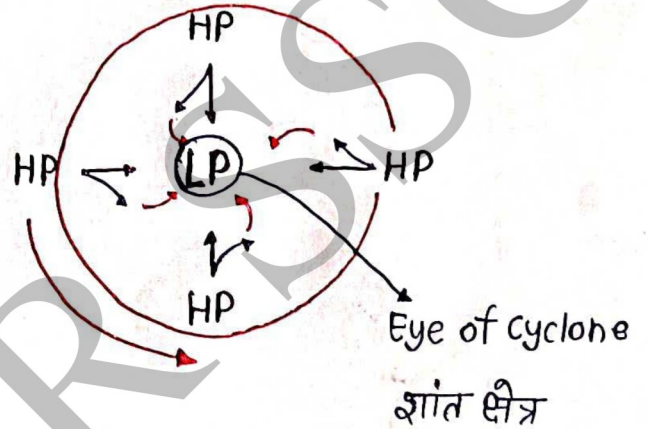 HP
HP
LP
HP
HP
Eye of Cyclone
शांत क्षेत्र